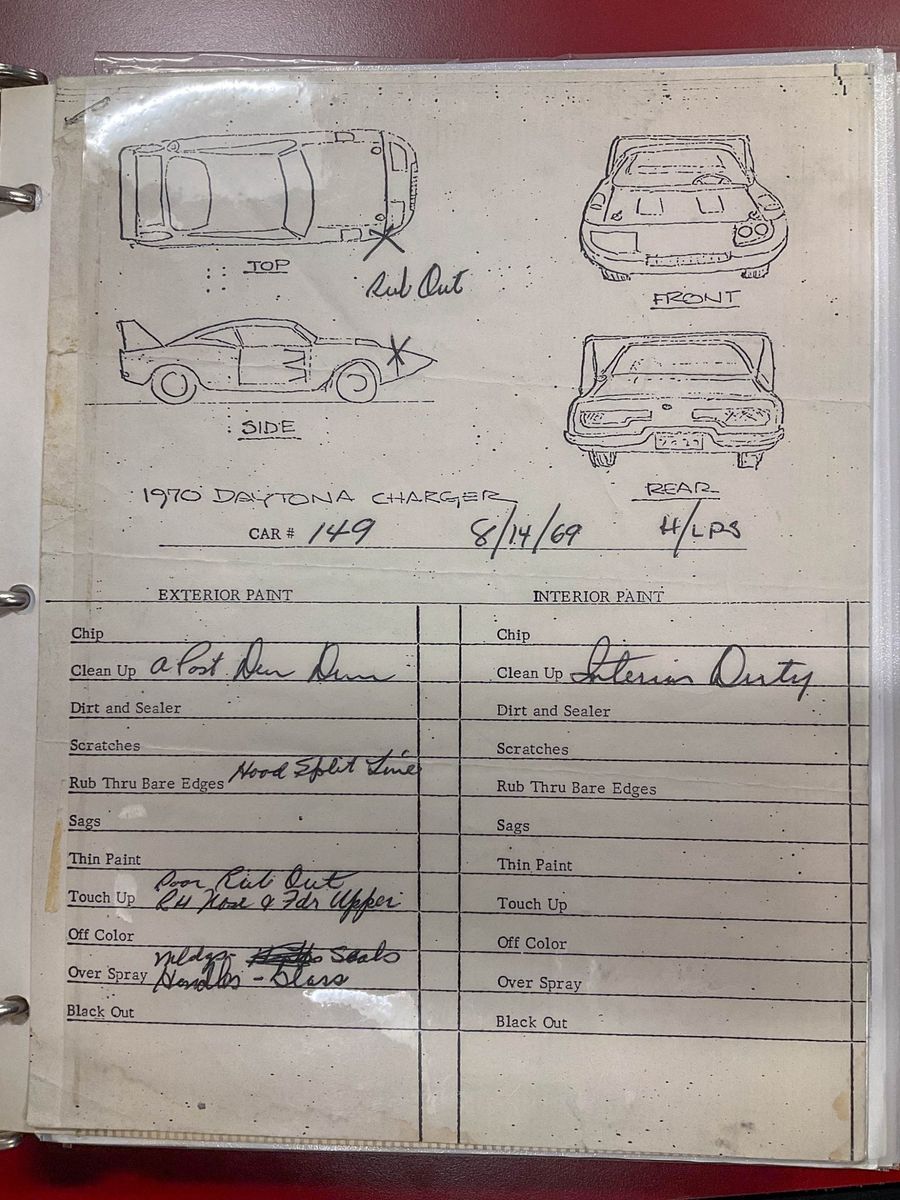 TOP
Rub Out
FRONT
SIDE
REAR
1970 DAYTONA CHARGER
CAR # 149 8/14/69 H/LPS
EXTERIOR PAINT INTERIOR PAINT
Chip Chip
Clean Up A Post Clean Up Interior Dirty
Dirt and Sealer Dirt and Sealer
Scratches Scratches
Rub Thru Bare Edges Hood Split Line Rub Thru Bare Edges
Sags Sags
Thin Paint Thin Paint
Poor Rub Out
Touch Up RH Nose & Fdr Upper Touch Up
Off Color Off Color
Mldgs - Seals
Over Spray Handles - Glass Over Spray
Black Out Black Out